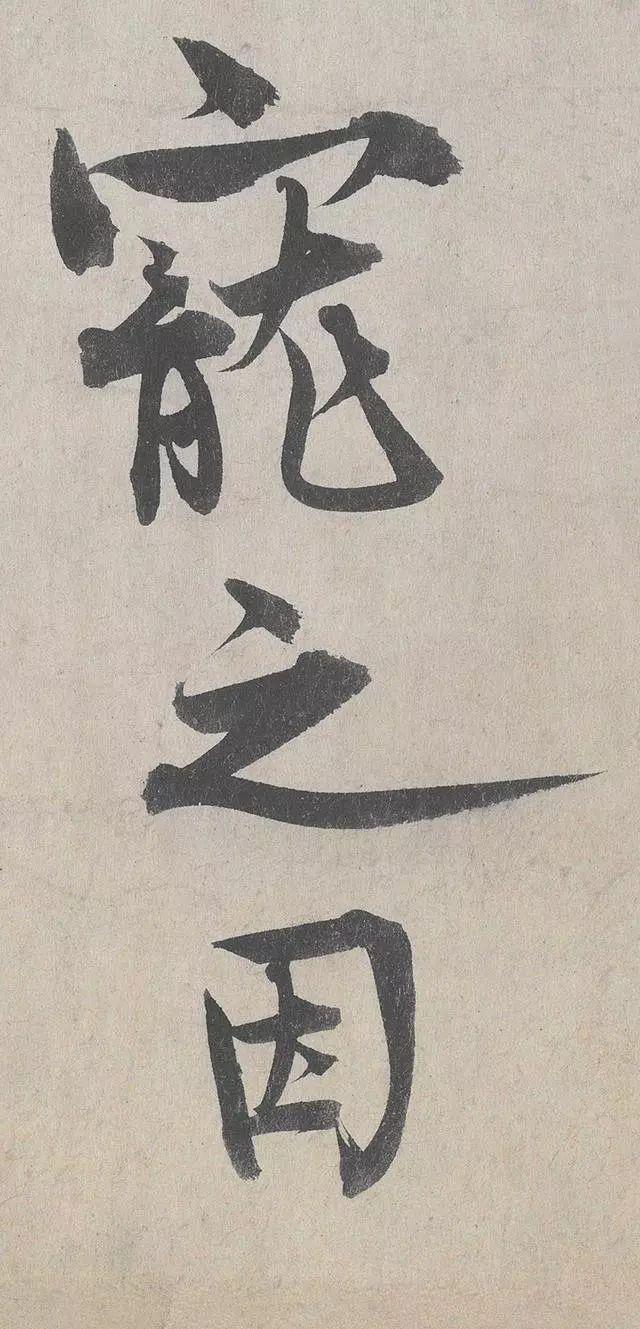 寵之因